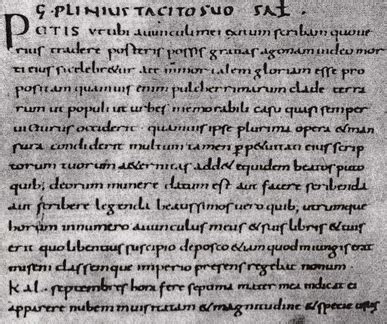 C. PLINIUS TACITO SUO SAL.
PETIS ut tibi auunculi mei exitum scribam quo ue
rius tradere posteris possis gratias ago nam uideo mor
ti eius si celebretur a te inmortalem gloriam esse pro
positam quamuis enim pulcherrimarum clade terra
rum ut populi ut urbes memorabili casu quasi semper
uicturus occiderit · quamuis ipse plurima opera & man
sura condiderit multum tamen perp&uitati eius scrip
torum tuorum a&ernitas add& equidem beatos puto
quib; deorum munere datum est aut facere scribenda
aut scribere legenda beatissimos uero quib; utrumque
horum in numero auunculus meus & suis libris & tuis
erit quo libentius suscipio deposco &iam quod iniungis erat
miseni classemque imperio presens regebat nonum ·
Kal · septembres hora fere septima mater mea indicat ei
apparere nubem inusitata & magnitudine & specie usus